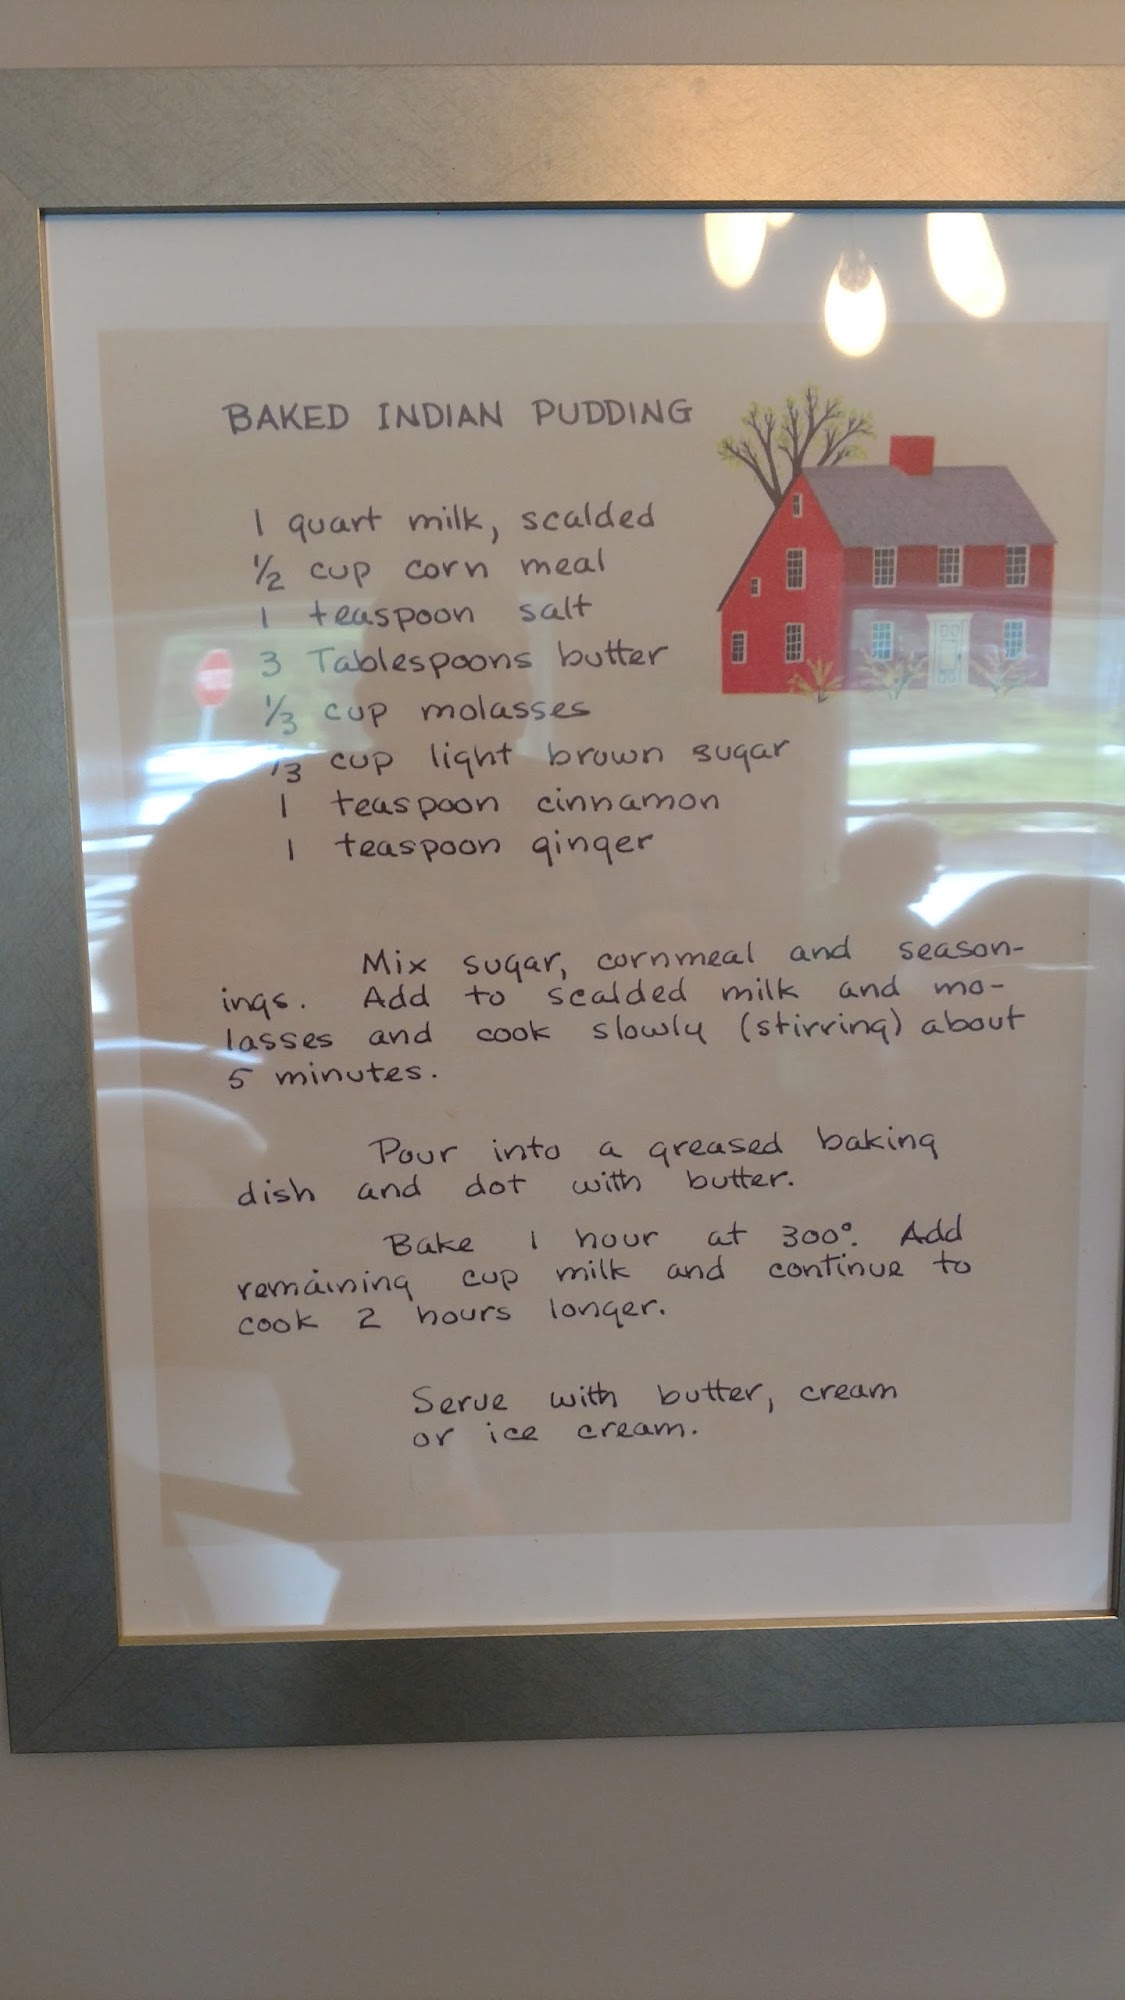 BAKED INDIAN PUDDING
1 quart milk, scalded
1/2 cup corn meal
1 teaspoon salt
3 Tablespoons butter
1/3 cup molasses
1/3 cup light brown sugar
1 teaspoon cinnamon
1 teaspoon ginger
Mix sugar, cornmeal and season-
ings. Add to scalded milk and mo-
lasses and cook slowly (stirring) about
5 minutes.
Pour into a greased baking
dish and dot with butter.
Bake 1 hour at 300°. Add
remaining cup milk and continue to
cook 2 hours longer.
Serve with butter, cream
or ice cream.